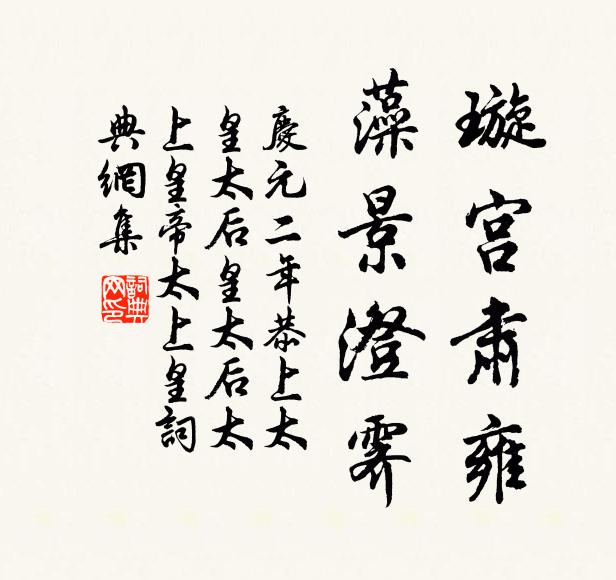 璇宮肅雍
藻景澄霽
慶元二年恭上太
皇太后皇太后太
上皇帝太上皇詞
典網集
詞典網印